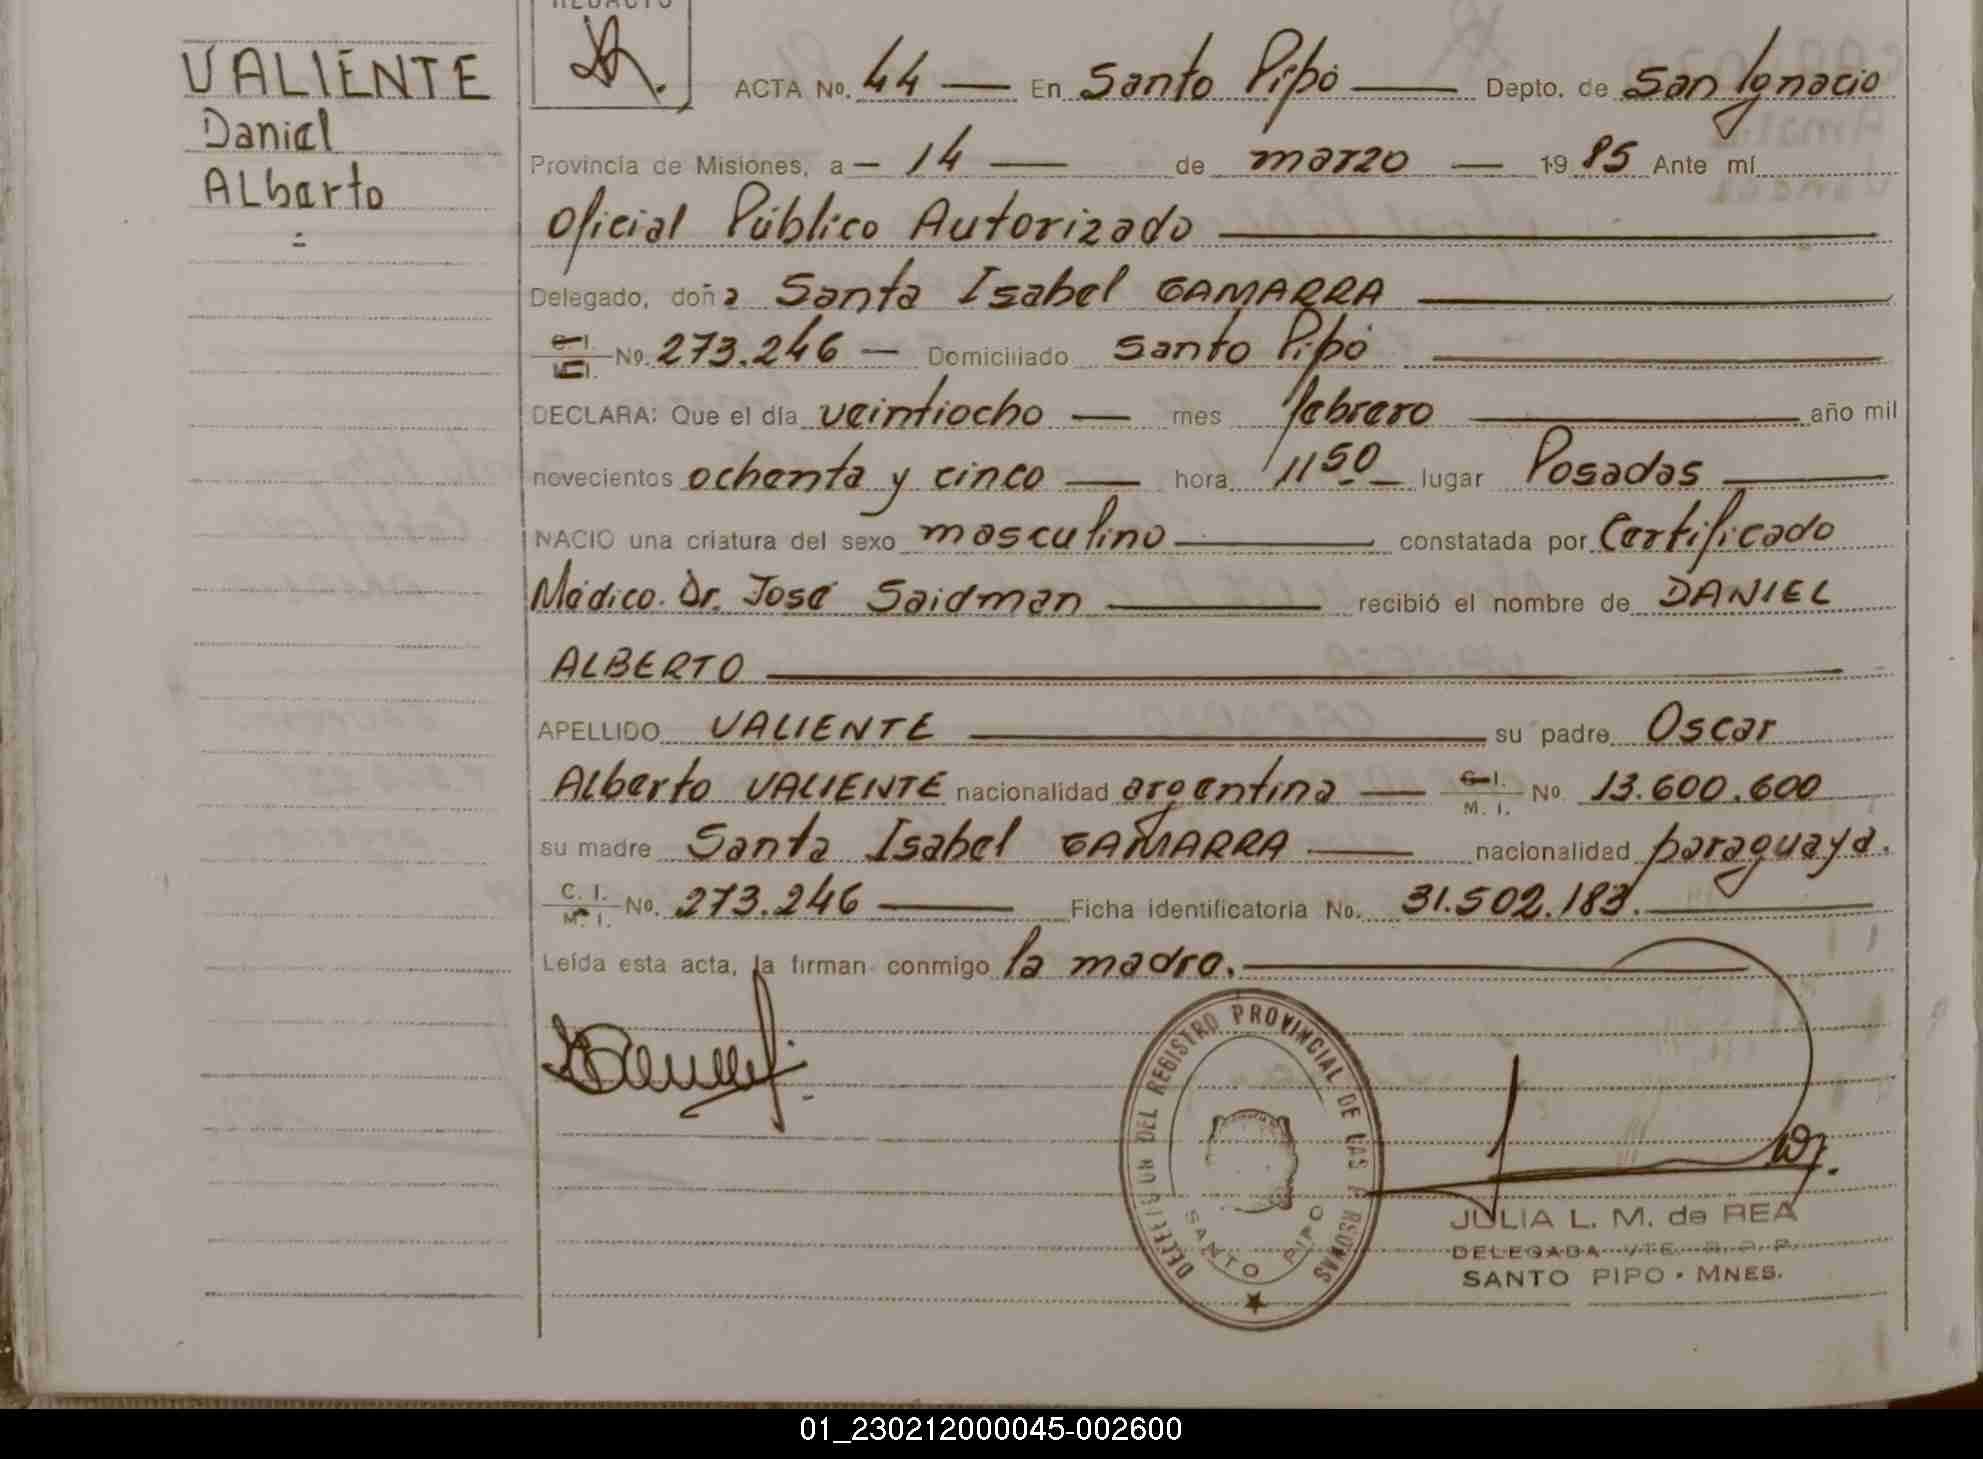 VALIENTE
Daniel
Alberto
REDACTO
ACTA No. 44 — En Santo Pipó — Depto. de San Ignacio
Provincia de Misiones, a — 14 — de marzo — 1985 Ante mí
Oficial Público Autorizado
Delegado, doña Santa Isabel GAMARRA
C. I. No. 273.246 — Domiciliado Santo Pipó
DECLARA: Que el día veintiocho — mes febrero — año mil
novecientos ochenta y cinco — hora 11 50 — lugar Posadas
NACIO una criatura del sexo masculino — constatada por Certificado
Médico. Dr. José Saidman — recibió el nombre de DANIEL
ALBERTO
APELLIDO VALIENTE — su padre Oscar
Alberto VALIENTE nacionalidad argentina — C. I. / M. I. No. 13.600.600
su madre Santa Isabel GAMARRA — nacionalidad paraguaya.
C. I. / M. I. No. 273.246 — Ficha identificatoria No. 31.502.183.
Leída esta acta, la firman conmigo la madre.
DELEGACION DEL REGISTRO PROVINCIAL DE LAS PERSONAS
SANTO PIPO
JULIA L. M. de REA
DELEGADA VTE. R. P. P.
SANTO PIPO - MNES.
01_230212000045-002600